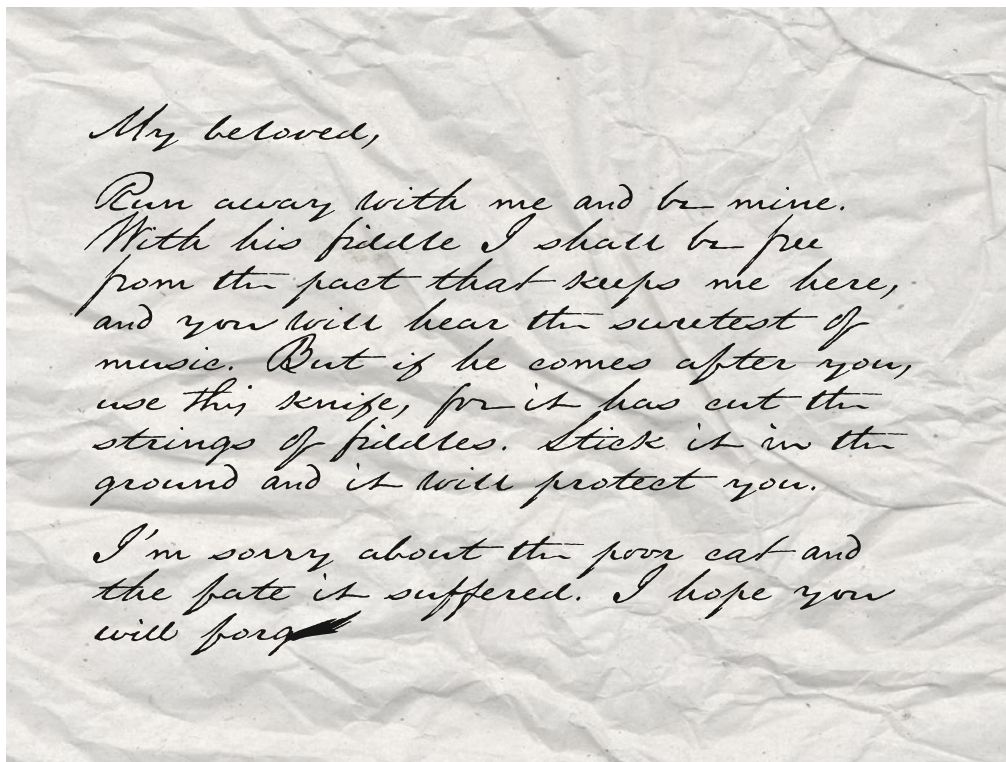 My beloved,
Run away with me and be mine.
With his fiddle I shall be free
from the pact that keeps me here,
and you will hear the sweetest of
music. But if he comes after you,
use this knife, for it has cut the
strings of fiddles. Stick it in the
ground and it will protect you.
I'm sorry about the poor cat and
the fate it suffered. I hope you
will forg